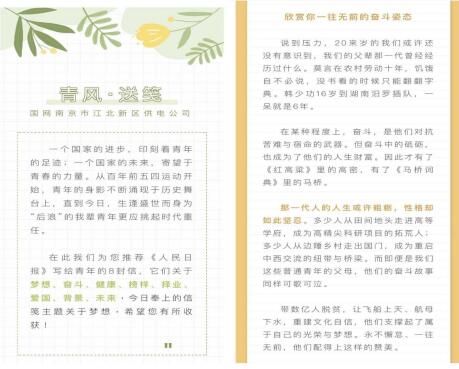 青风·送笺
国网南京市江北新区供电公司
一个国家的进步，印刻着青年
的足迹；一个国家的未来，寄望于
青春的力量。从百年前五四运动开
始，青年的身影不断涌现于历史舞
台上，直到今日，生逢盛世而身为
“后浪”的我辈青年更应挑起时代重
任。
在此我们为您推荐《人民日
报》写给青年的8封信，它们关于
梦想、奋斗、健康、榜样、择业、
爱国、背景、未来，今日奉上的信
笺主题关于梦想，希望您有所收
获！
欣赏你一往无前的奋斗姿态
说到压力，20来岁的我们或许还
没有意识到，我们的父辈那一代曾经经
历过什么。莫言在农村劳动十年，饥饿
自不必说，没书看的时候只能翻翻字
典。韩少功16岁到湖南汨罗插队，一
呆就是6年。
在某种程度上，奋斗，是他们对抗
苦难与宿命的武器。但奋斗中的砥砺，
也成为了他们的人生财富。因此才有了
《红高粱》里的高密，有了《马桥词
典》里的马桥。
那一代人的人生或许粗粝，性格却
如此坚忍。多少人从田间地头走进高等
学府，成为高精尖科研项目的拓荒人；
多少人从边陲乡村走出国门，成为重启
中西交流的纽带与桥梁。而即便是我们
这些普通青年的父母，他们的奋斗故事
同样可歌可泣。
带数亿人脱贫，让飞船上天、航母
下水，重建文化自信，他们支撑起了属
于自己的光荣与梦想。永不懈怠、一往
无前，他们配得上这样的赞美。